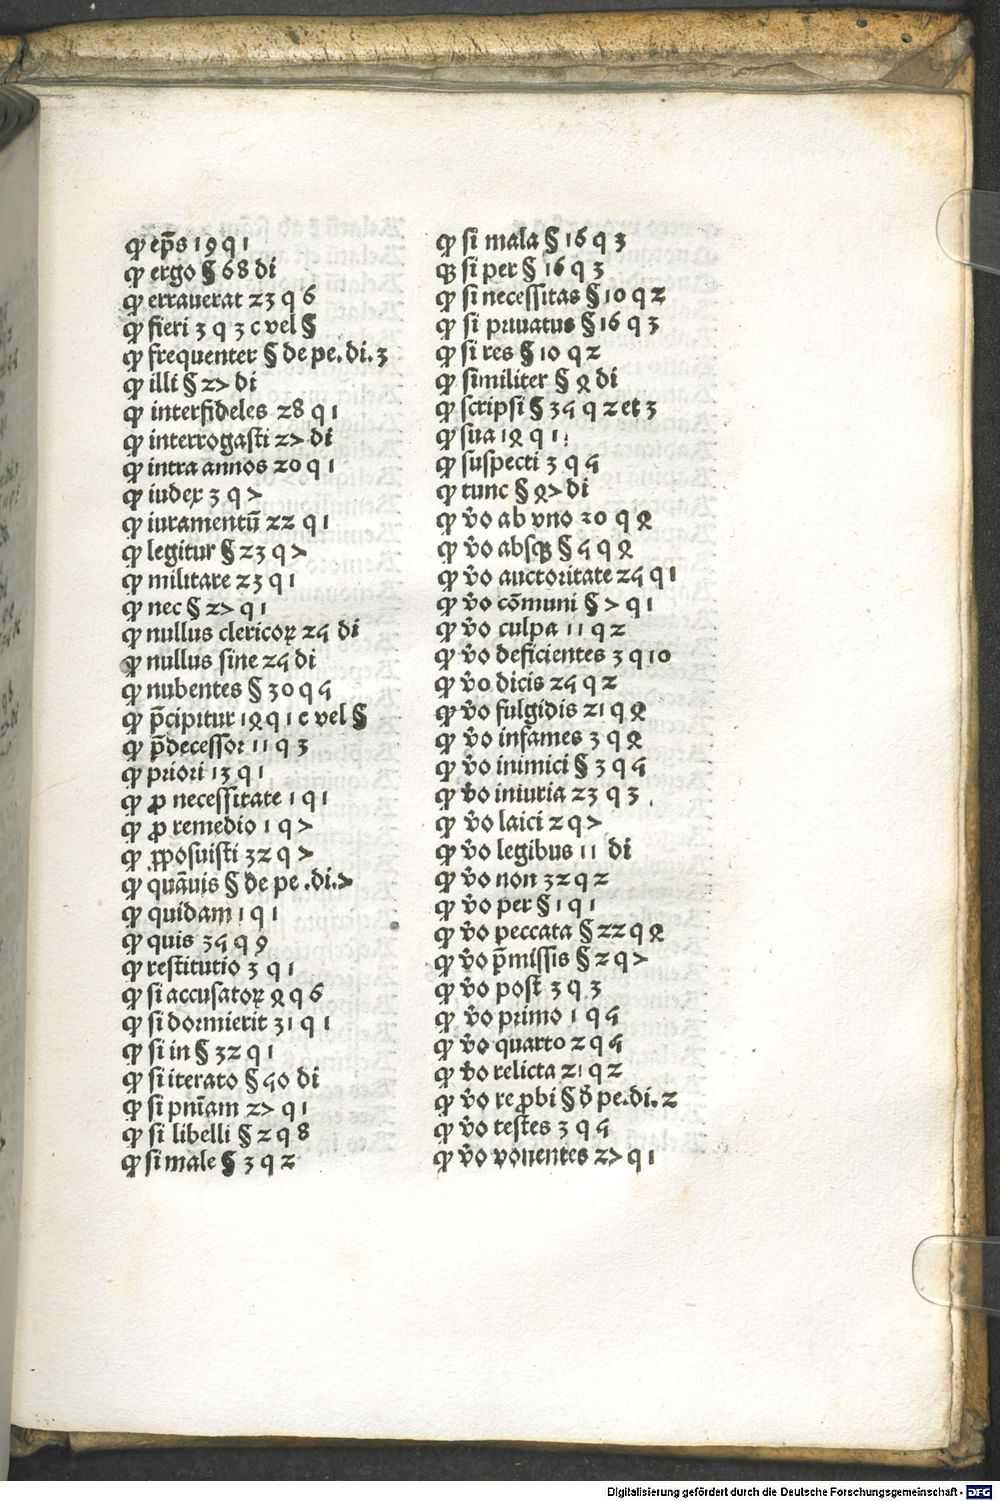 ꝙ ep̄s 19 q 1
ꝙ ergo § 68 di
ꝙ errauerat 23 q 6
ꝙ fieri 3 q 3 c vel §
ꝙ frequenter § de pe. di. 3
ꝙ illi § 27 di
ꝙ interfideles 28 q 1
ꝙ interrogasti 27 di
ꝙ intra annos 20 q 1
ꝙ iudex 3 q 7
ꝙ iuramentū 22 q 1
ꝙ legitur § 23 q 7
ꝙ militare 23 q 1
ꝙ nec § 27 q 1
ꝙ nullus clericoꝝ 25 di
ꝙ nullus sine 25 di
ꝙ nubentes § 30 q 5
ꝙ p̄cipitur 14 q 1 c vel §
ꝙ p̄decessor 11 q 3
ꝙ priori 13 q 1
ꝙ ꝓ necessitate 1 q 1
ꝙ ꝓ remedio 1 q 7
ꝙ ꝓposuisti 32 q 7
ꝙ quāuis § de pe .di. 7
ꝙ quidam 1 q 1
ꝙ quis 35 q 9
ꝙ restitutio 3 q 1
ꝙ si accusatoꝝ 4 q 6
ꝙ si dormierit 31 q 1
ꝙ si in § 32 q 1
ꝙ si iterato § 50 di
ꝙ si pnīam 27 q 1
ꝙ si libelli § 2 q 8
ꝙ si male § 3 q 2
ꝙ si mala § 16 q 3
ꝙ si per § 16 q 3
ꝙ si necessitas § 10 q 2
ꝙ si priuatus § 16 q 3
ꝙ si res § 10 q 2
ꝙ similiter § 4 di
ꝙ scripsi § 35 q 2 et 3
ꝙ sua 14 q 1
ꝙ suspecti 3 q 5
ꝙ tunc § 47 di
ꝙ v̊o ab vno 20 q 4
ꝙ v̊o absqꝫ § 5 q 4
ꝙ v̊o auctoritate 25 q 1
ꝙ v̊o cōmuni § 7 q 1
ꝙ v̊o culpa 11 q 2
ꝙ v̊o deficientes 3 q 10
ꝙ v̊o dicis 25 q 2
ꝙ v̊o fulgidis 21 q 4
ꝙ v̊o infames 3 q 4
ꝙ v̊o inimici § 3 q 5
ꝙ v̊o iniuria 23 q 3
ꝙ v̊o laici 2 q 7
ꝙ v̊o legibus 11 di
ꝙ v̊o non 32 q 2
ꝙ v̊o per § 1 q 1
ꝙ v̊o peccata § 22 q 4
ꝙ v̊o p̄missis § 2 q 7
ꝙ v̊o post 3 q 3
ꝙ v̊o primo 1 q 5
ꝙ v̊o quarto 2 q 5
ꝙ v̊o relicta 21 q 2
ꝙ v̊o reꝓbi § ð pe. di. 2
ꝙ v̊o testes 3 q 5
ꝙ v̊o vouentes 27 q 1
Digitalisierung gefördert durch die Deutsche Forschungsgemeinschaft - DFG